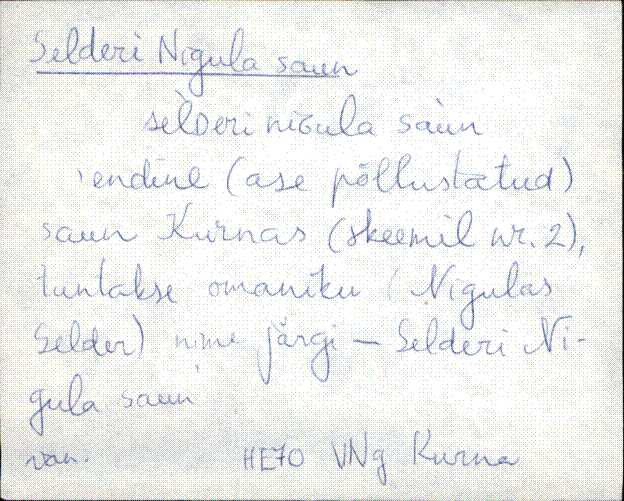 Selderi Nigula saun
sèlDeri niGula sàun
endine (ase põllustatud)
saun Kurnas (skeemil nr. 2),
tuntakse omaniku (Nigulas
Selder) nime järgi – Selderi Ni-
gula saun
van. HE70 VNg Kurna